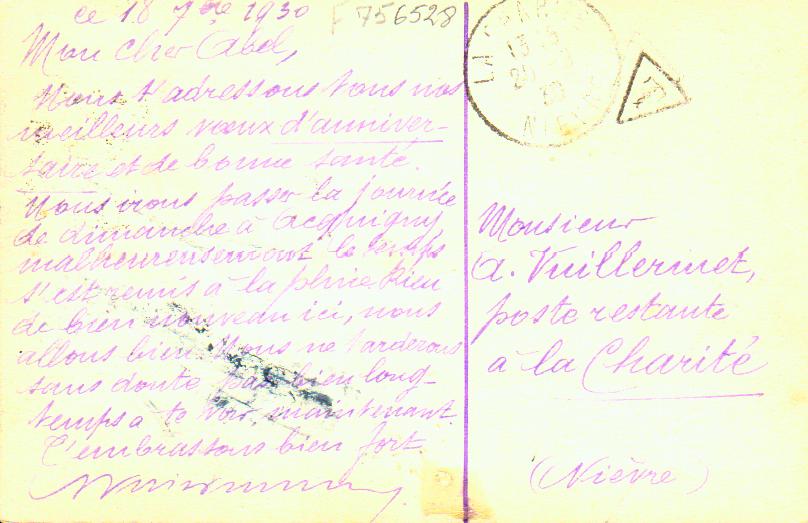 ce 18 7bre 1930
F 756528
Mon cher Abel,
Nous t'adressons tous nos
meilleurs vœux d'anniver-
saire et de bonne santé.
Nous irons passer la journée
de dimanche à Acquigny
malheureusement le temps
s'est remis à la pluie. Rien
de bien nouveau ici, nous
allons bien. Nous ne tarderons
sans doute pas bien long-
temps a te voir maintenant.
T'embrassons bien fort.
LA CHARITÉ
NIÈVRE
T
Monsieur
A. Vuillerinet,
poste restante
à la Charité
(Nièvre)